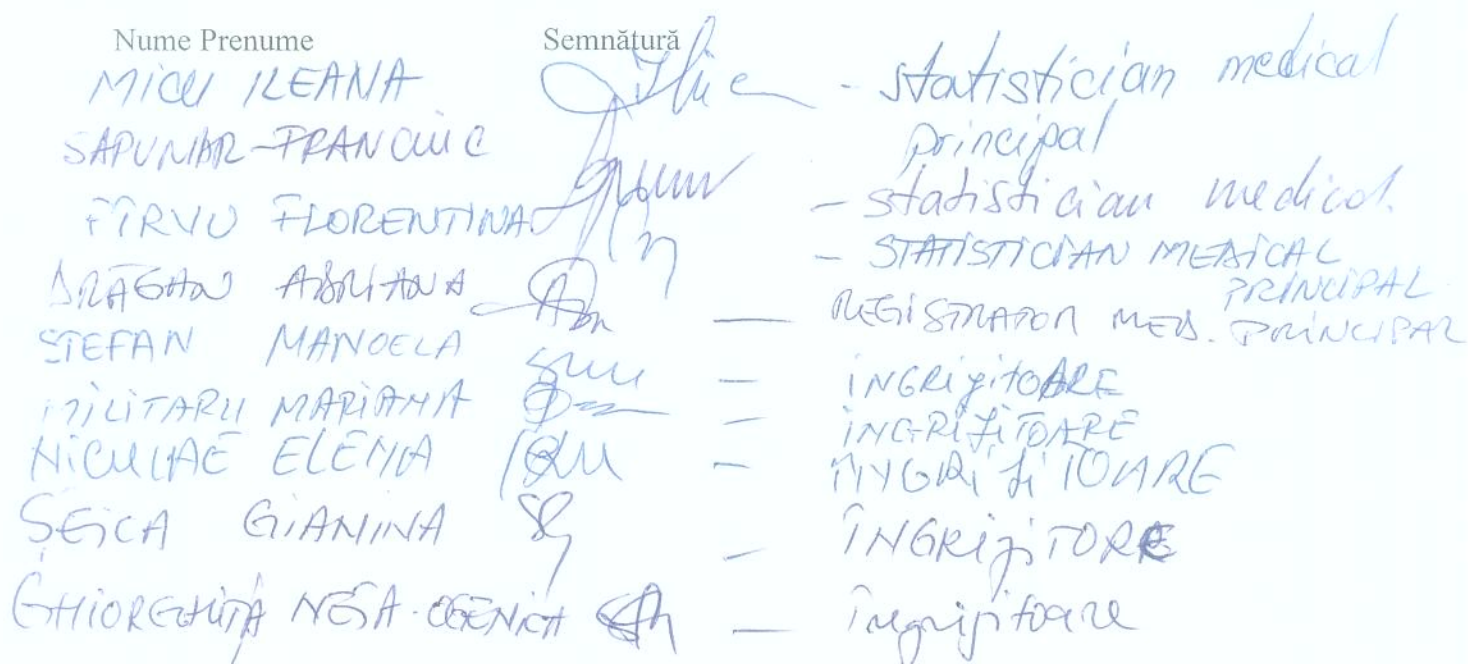 Nume Prenume Semnătură
MICU ILEANA - statistician medical
principal
SAPUNAR-FRANCIUC - statistician medical.
FÎRVU FLORENTINA - STATISTICIAN MEDICAL
PRINCIPAL
DRĂGAN ADRIANA — REGISTRATOR MED. PRINCIPAL
STEFAN MANOELA — INGRIJITOARE
MILITARU MARIANA — INGRIJITOARE
NICULAE ELENA — INGRIJITOARE
ȘEICA GIANINA — ÎNGRIJITORE
GHIORGHIȚĂ — Îngrijitoare